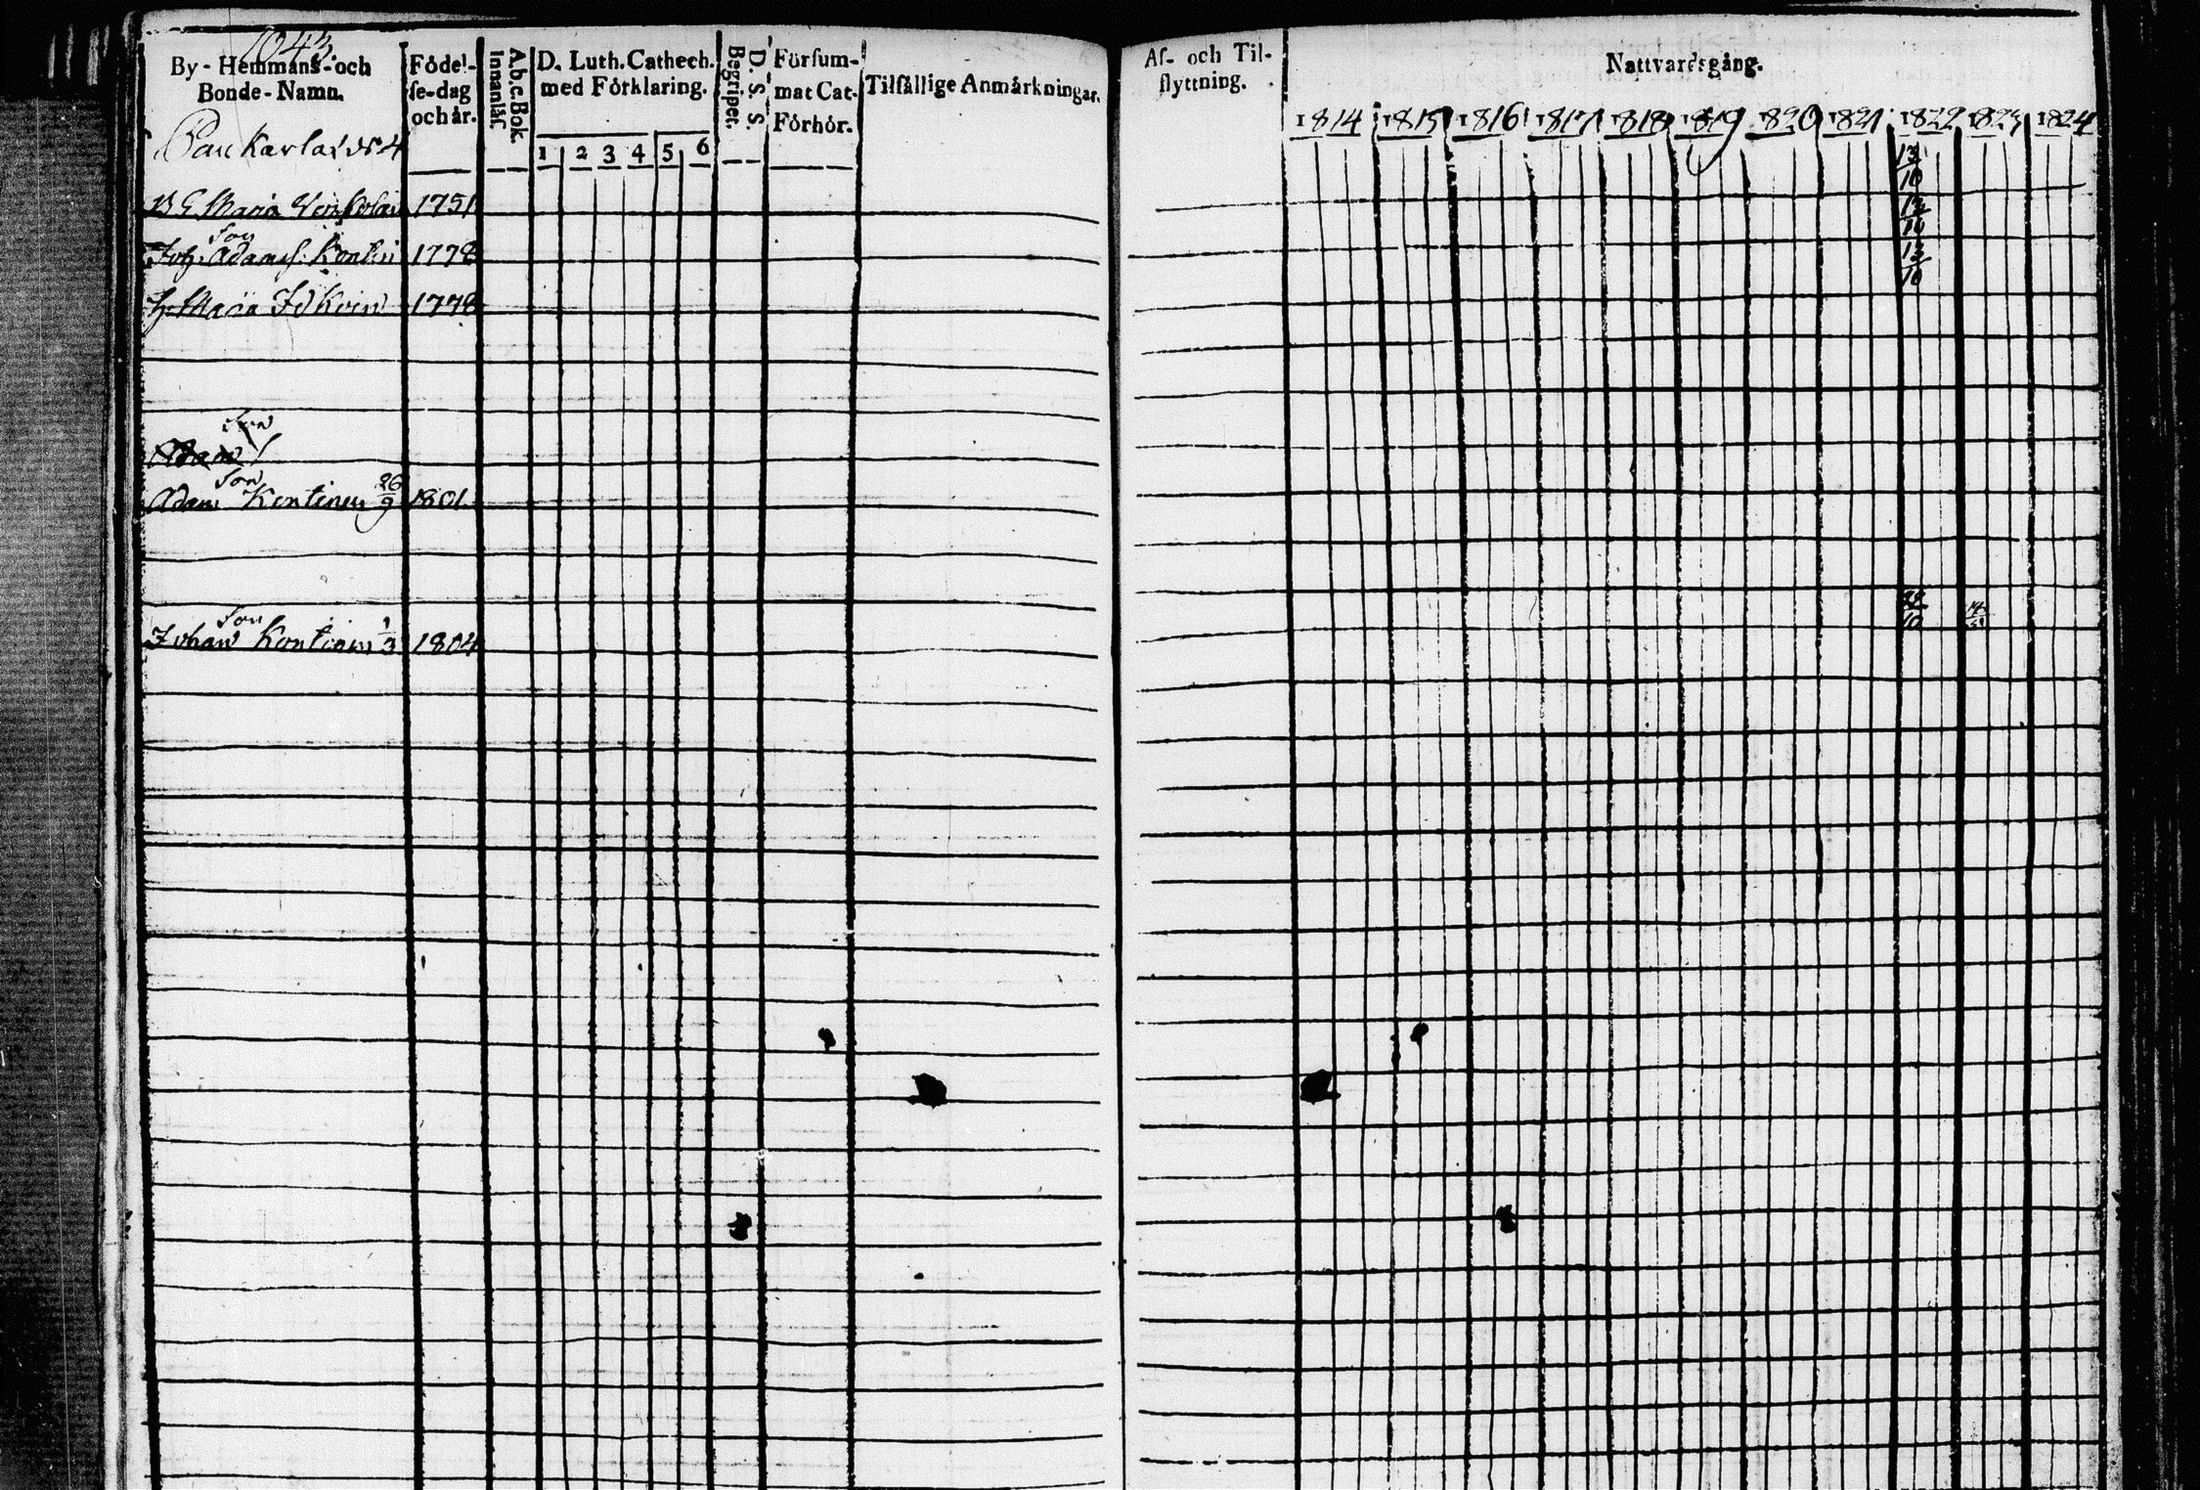 1043.
By-Hemmans-och Bonde-Namn.
Födel-se-dag och år.
A.b.c.Bok. Innanläs.
D. Luth. Cathech. med Förklaring.
1 2 3 4 5 6
D. S. S. Begripet.
Försum-mat Cat-Förhör.
Tilfällige Anmärkningar.
Af- och Til-flyttning.
Nattvardsgång.
1814 1815 1816 1817 1818 1819 1820 1821 1822 1823 1824
N 4
Maria 1751
13/10
Son
Joh. Adams. Kontin 1778
13/10
h. Maria 1778
13/10
Son
Adam
Son
Adam Kontinen 26/9 1801.
Son
Johan Kontinen 1/3 1804